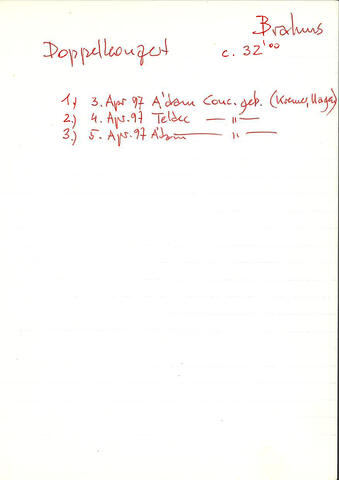 Brahms
Doppelkonzert c. 32'00
1.) 3. Apr 97 A'dam Conc. geb. (Kremer, Hagen)
2.) 4. Apr. 97 Teldec — " —
3.) 5. Apr. 97 A'dam — " —